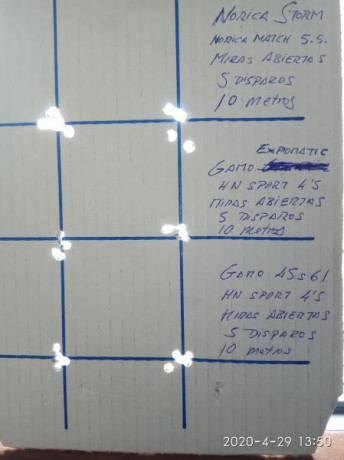 NORICA STORM
NORICA MATCH 5.5.
MIRAS ABIERTAS
5 DISPAROS
10 metros
EXPOMATIC
GAMO
HN SPORT 4'5
MIRAS ABIERTAS
5 DISPAROS
10 metros
GAMO 45561
HN SPORT 4'5
MIRAS ABIERTAS
5 DISPAROS
10 metros
2020-4-29 13:50